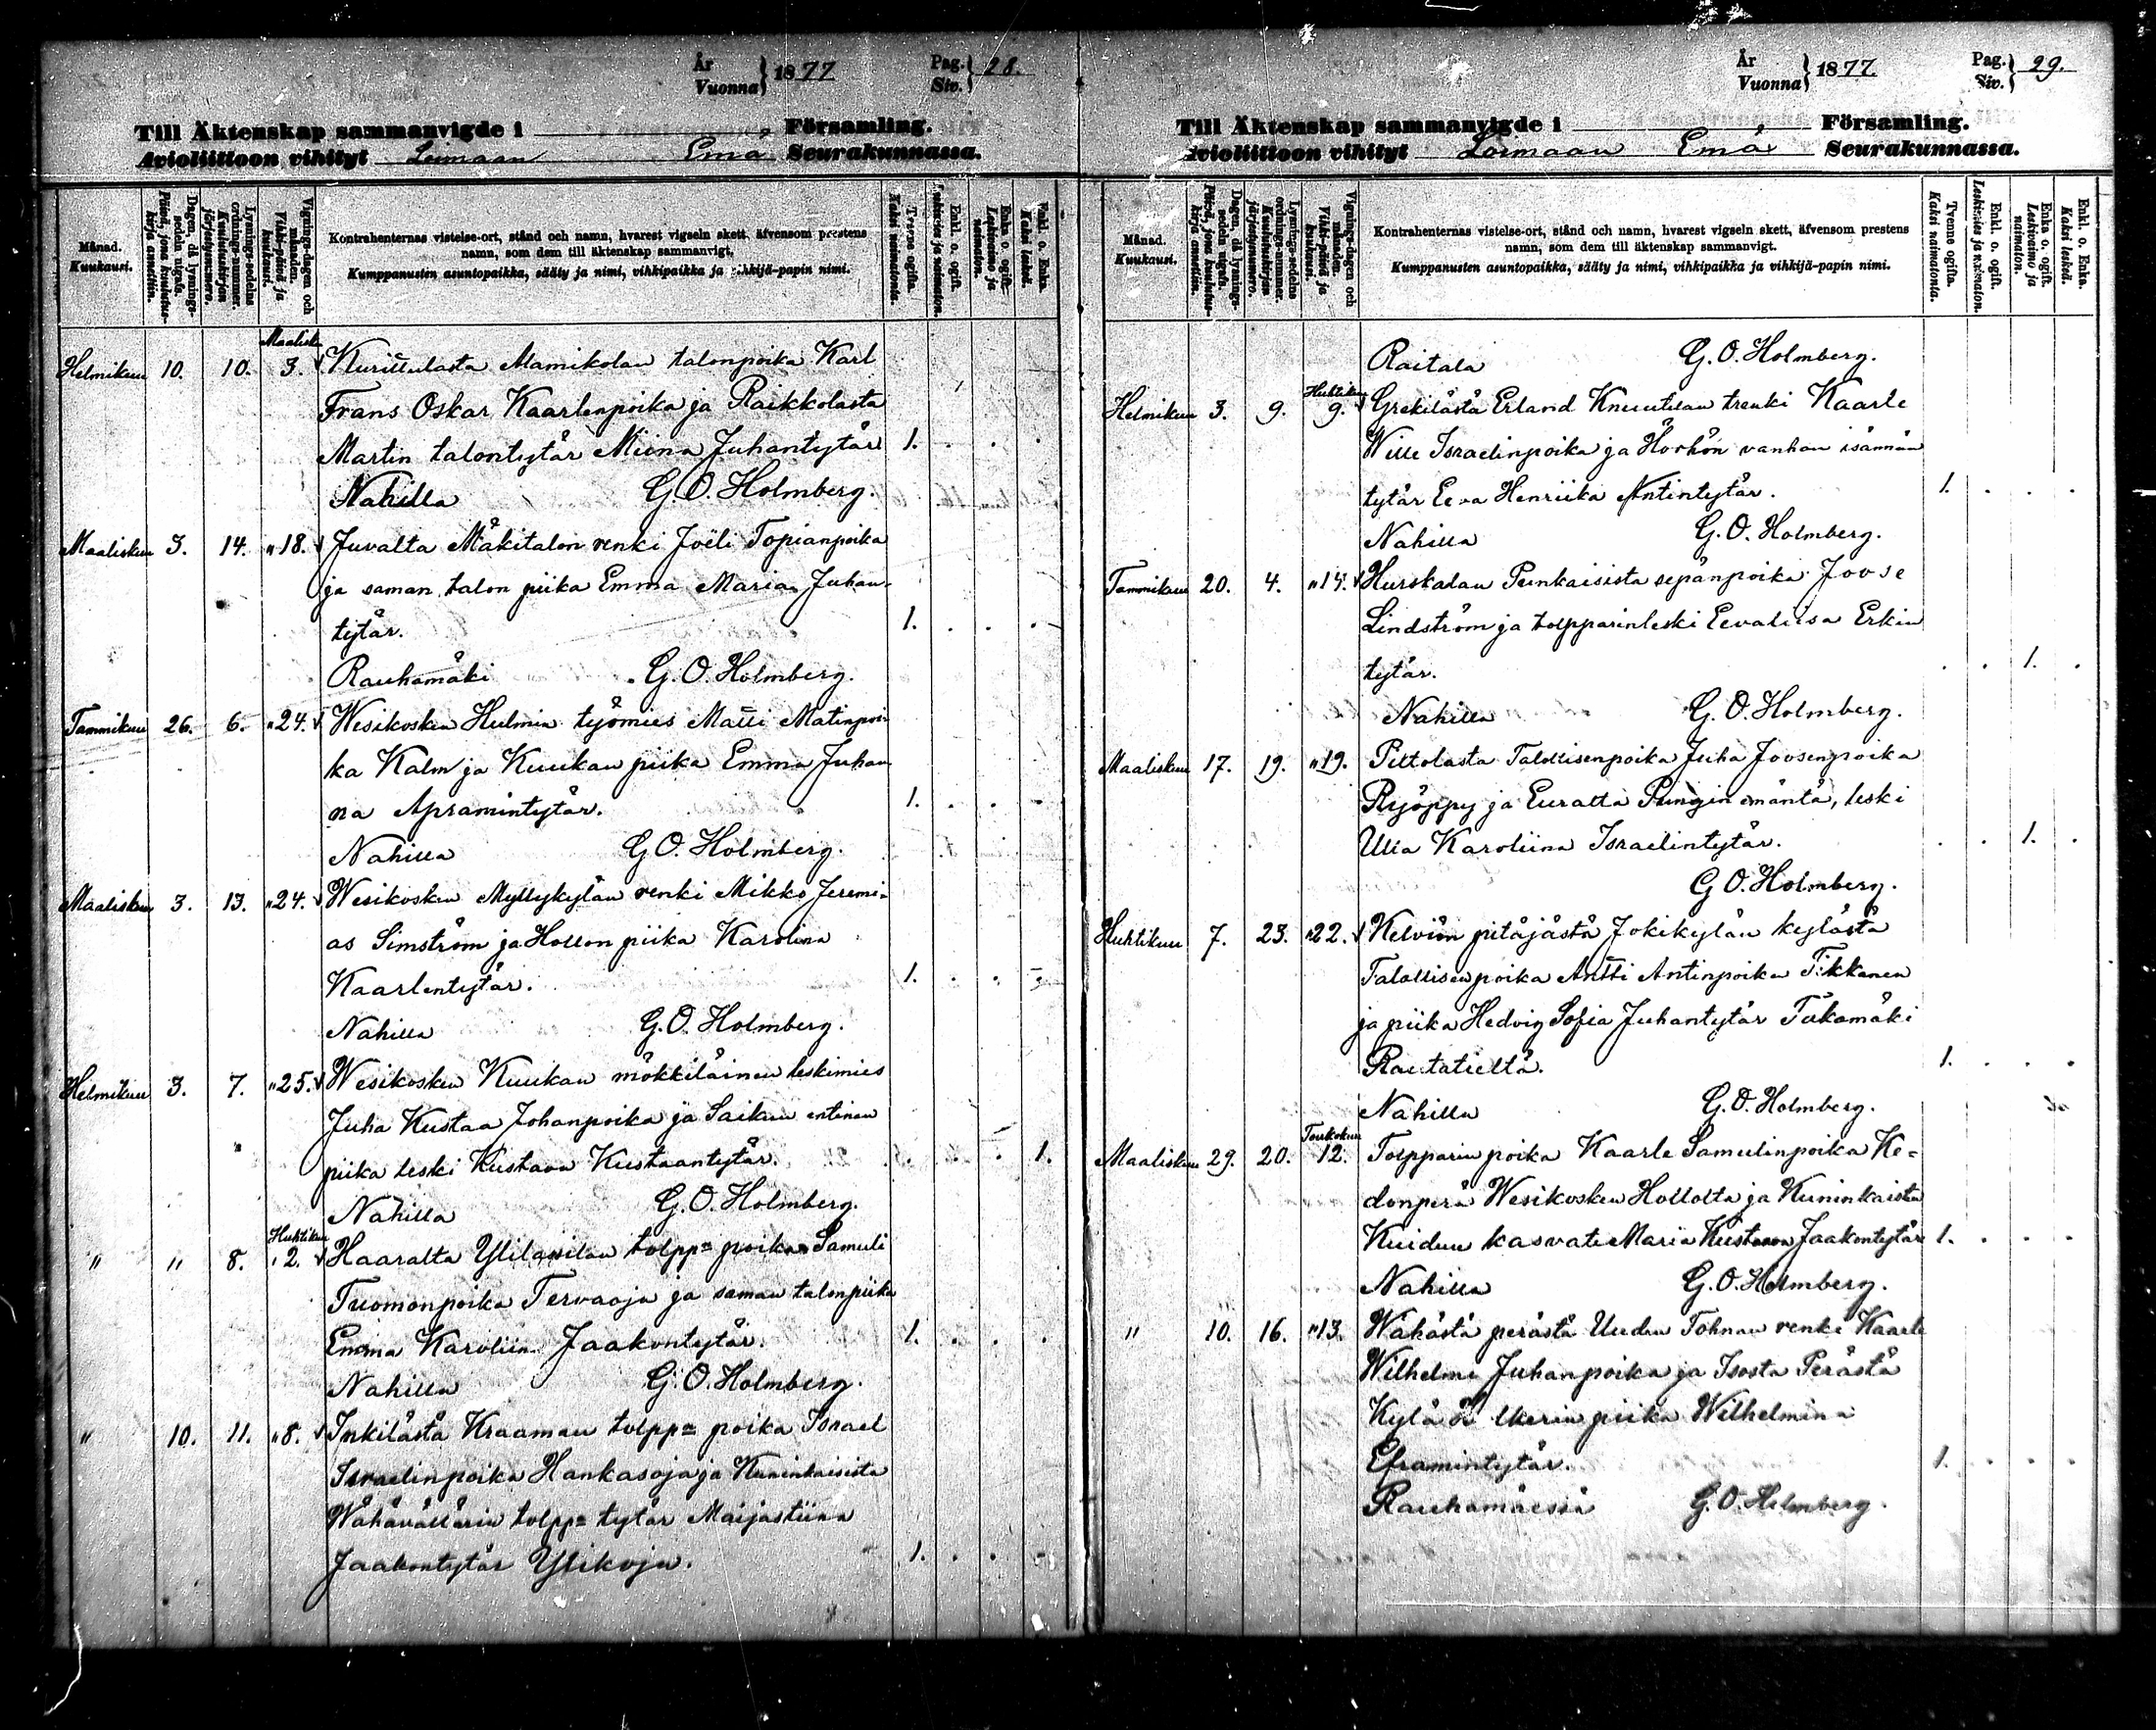 År
Vuonna } 1877
Pag.
Siv. } 28.
Till Äktenskap sammanvigde i Församling.
Avioliittoon vihityt Loimaan Emä Seurakunnassa.
Månad.
Kuukausi.
Dagen, då lysnings-sedeln utgafs.
Päivä, jona kuulutus-kirja annettiin.
Lysnings-sedelns ordnings-nummer.
Kuulutuskirjan järjestysnumero.
Vignings-dagen och månaden.
Vihki-päivä ja kuukausi.
Kontrahenternas vistelse-ort, stånd och namn, hvarest vigseln skett, äfvensom prestens
namn, som dem till äktenskap sammanvigt.
Kumppanusten asuntopaikka, sääty ja nimi, vihkipaikka ja vihkijä-papin nimi.
Tvenne ogifta.
Kaksi naimatonta.
Enkl. o. ogift.
Leskimies ja naimaton.
Enka o. ogift.
Leskivaimo ja naimaton.
Enkl. o. Enka.
Kaksi leskeä.
Maalisk.
Helmikuu 10. 10. 3. Kurittulasta Mamikolan talonpoika Karl
Frans Oskar Kaarlenpoika ja Raikkolasta
Martin talontytär Miina Juhantytär 1. . . .
Nahilla G.O. Holmberg.
Maaliskuu 3. 14. " 18. Juvalta Mäkitalon renki Joeli Topianpoika
ja saman talon piika Emma Maria Juhan-
tytär. 1. . . .
Rauhamäki G.O. Holmberg.
Tammikuu 26. 6. " 24. Wesikosken Hulmin työmies Matti Matinpoi-
ka Kalm ja Kuukan piika Emma Juhan
na Apramintytär. 1. . . .
Nahilla G.O. Holmberg.
Maaliskuu 3. 13. " 24. Wesikosken Myllykylän renki Mikko Jeremi-
as Simström ja Hollon piika Karolina
Kaarlentytär. 1. . . .
Nahilla G.O. Holmberg.
Helmikuu 3. 7. " 25. Wesikosken Kuukan mökkiläinen leskimies
Juha Kustaa Johanpoika ja Saikun entinen
piika leski Kustava Kustaantytär. . . . 1.
Nahilla G.O. Holmberg.
Huhtikuu
" " 8. 2. Haaralta tolpp= poika Samuli
Tuomonpoika Tervaoja ja saman talonpiika
Emma Karoliin Jaakontytär. 1. . . .
Nahilla G.O. Holmberg.
" 10. 11. " 8. Inkilästä Kraaman tolpp= poika Israel
Israelinpoika Hankasoja ja Kuninkaisista
Wähävällärin tolpp= tytär Maijastiina
Jaakontytär Ylikoja. 1. . . .
År
Vuonna } 1877.
Pag.
Siv. } 29.
Till Äktenskap sammanvigde i Församling.
Avioliittoon vihityt Loimaan Emä Seurakunnassa.
Månad.
Kuukausi.
Dagen, då lysnings-sedeln utgafs.
Päivä, jona kuulutus-kirja annettiin.
Lysnings-sedelns ordnings-nummer.
Kuulutuskirjan järjestysnumero.
Vignings-dagen och månaden.
Vihki-päivä ja kuukausi.
Kontrahenternas vistelse-ort, stånd och namn, hvarest vigseln skett, äfvensom prestens
namn, som dem till äktenskap sammanvigt.
Kumppanusten asuntopaikka, sääty ja nimi, vihkipaikka ja vihkijä-papin nimi.
Tvenne ogifta.
Kaksi naimatonta.
Enkl. o. ogift.
Leskimies ja naimaton.
Enka o. ogift.
Leskivaimo ja naimaton.
Enkl. o. Enka.
Kaksi leskeä.
Raitala G.O. Holmberg.
Huhtikuu
Helmikuu 3. 9. 9. Grekilästä Erland Knuutilan trenki Kaarle
Wille Israelinpoika ja Hörhön vanhan isännän
tytär Eeva Henriika Antintytär. 1. . . .
Nahilla G.O. Holmberg.
Tammikuu 20. 4. " 15. Hurskalan Punkaisista sepänpoika Joose
Lindström ja tolpparinleski Eevaliisa Erkin
tytär. . . 1. .
Nahilla G.O. Holmberg.
Maaliskuu 17. 19. " 19. Peltolasta Talollisenpoika Juha Joosenpoika
Ryöppy ja Euralta Pungin emäntä, leski
Ulla Karoliina Israelintytär. . . 1. .
G.O. Holmberg.
Huhtikuu 7. 23. " 22. Kelviön pitäjästä Jokikylän kylästä
Talollisenpoika Antti Antinpoika Tikkanen
ja piika Hedvig Sofia Juhantytär Tukamäki
Rautatieltä. 1. . . .
Nahilla G.O. Holmberg.
Toukokuu
Maaliskuu 29. 20. 12. Torpparin poika Kaarle Samulinpoika Ke=
donperä Wesikosken Hollolta ja Kuninkaista
Kuidun kasvate Maria Kustava Jaakontytär 1. . . .
Nahilla G.O. Holmberg.
" 10. 16. " 13. Wähästä perästä Uuden Töhnan renki Kaarle
Wilhelmi Juhanpoika ja Isosta Perästä
Kylä piika Wilhelmina
Eframintytär. 1. . . .
Rauhamäessä G.O. Holmberg.